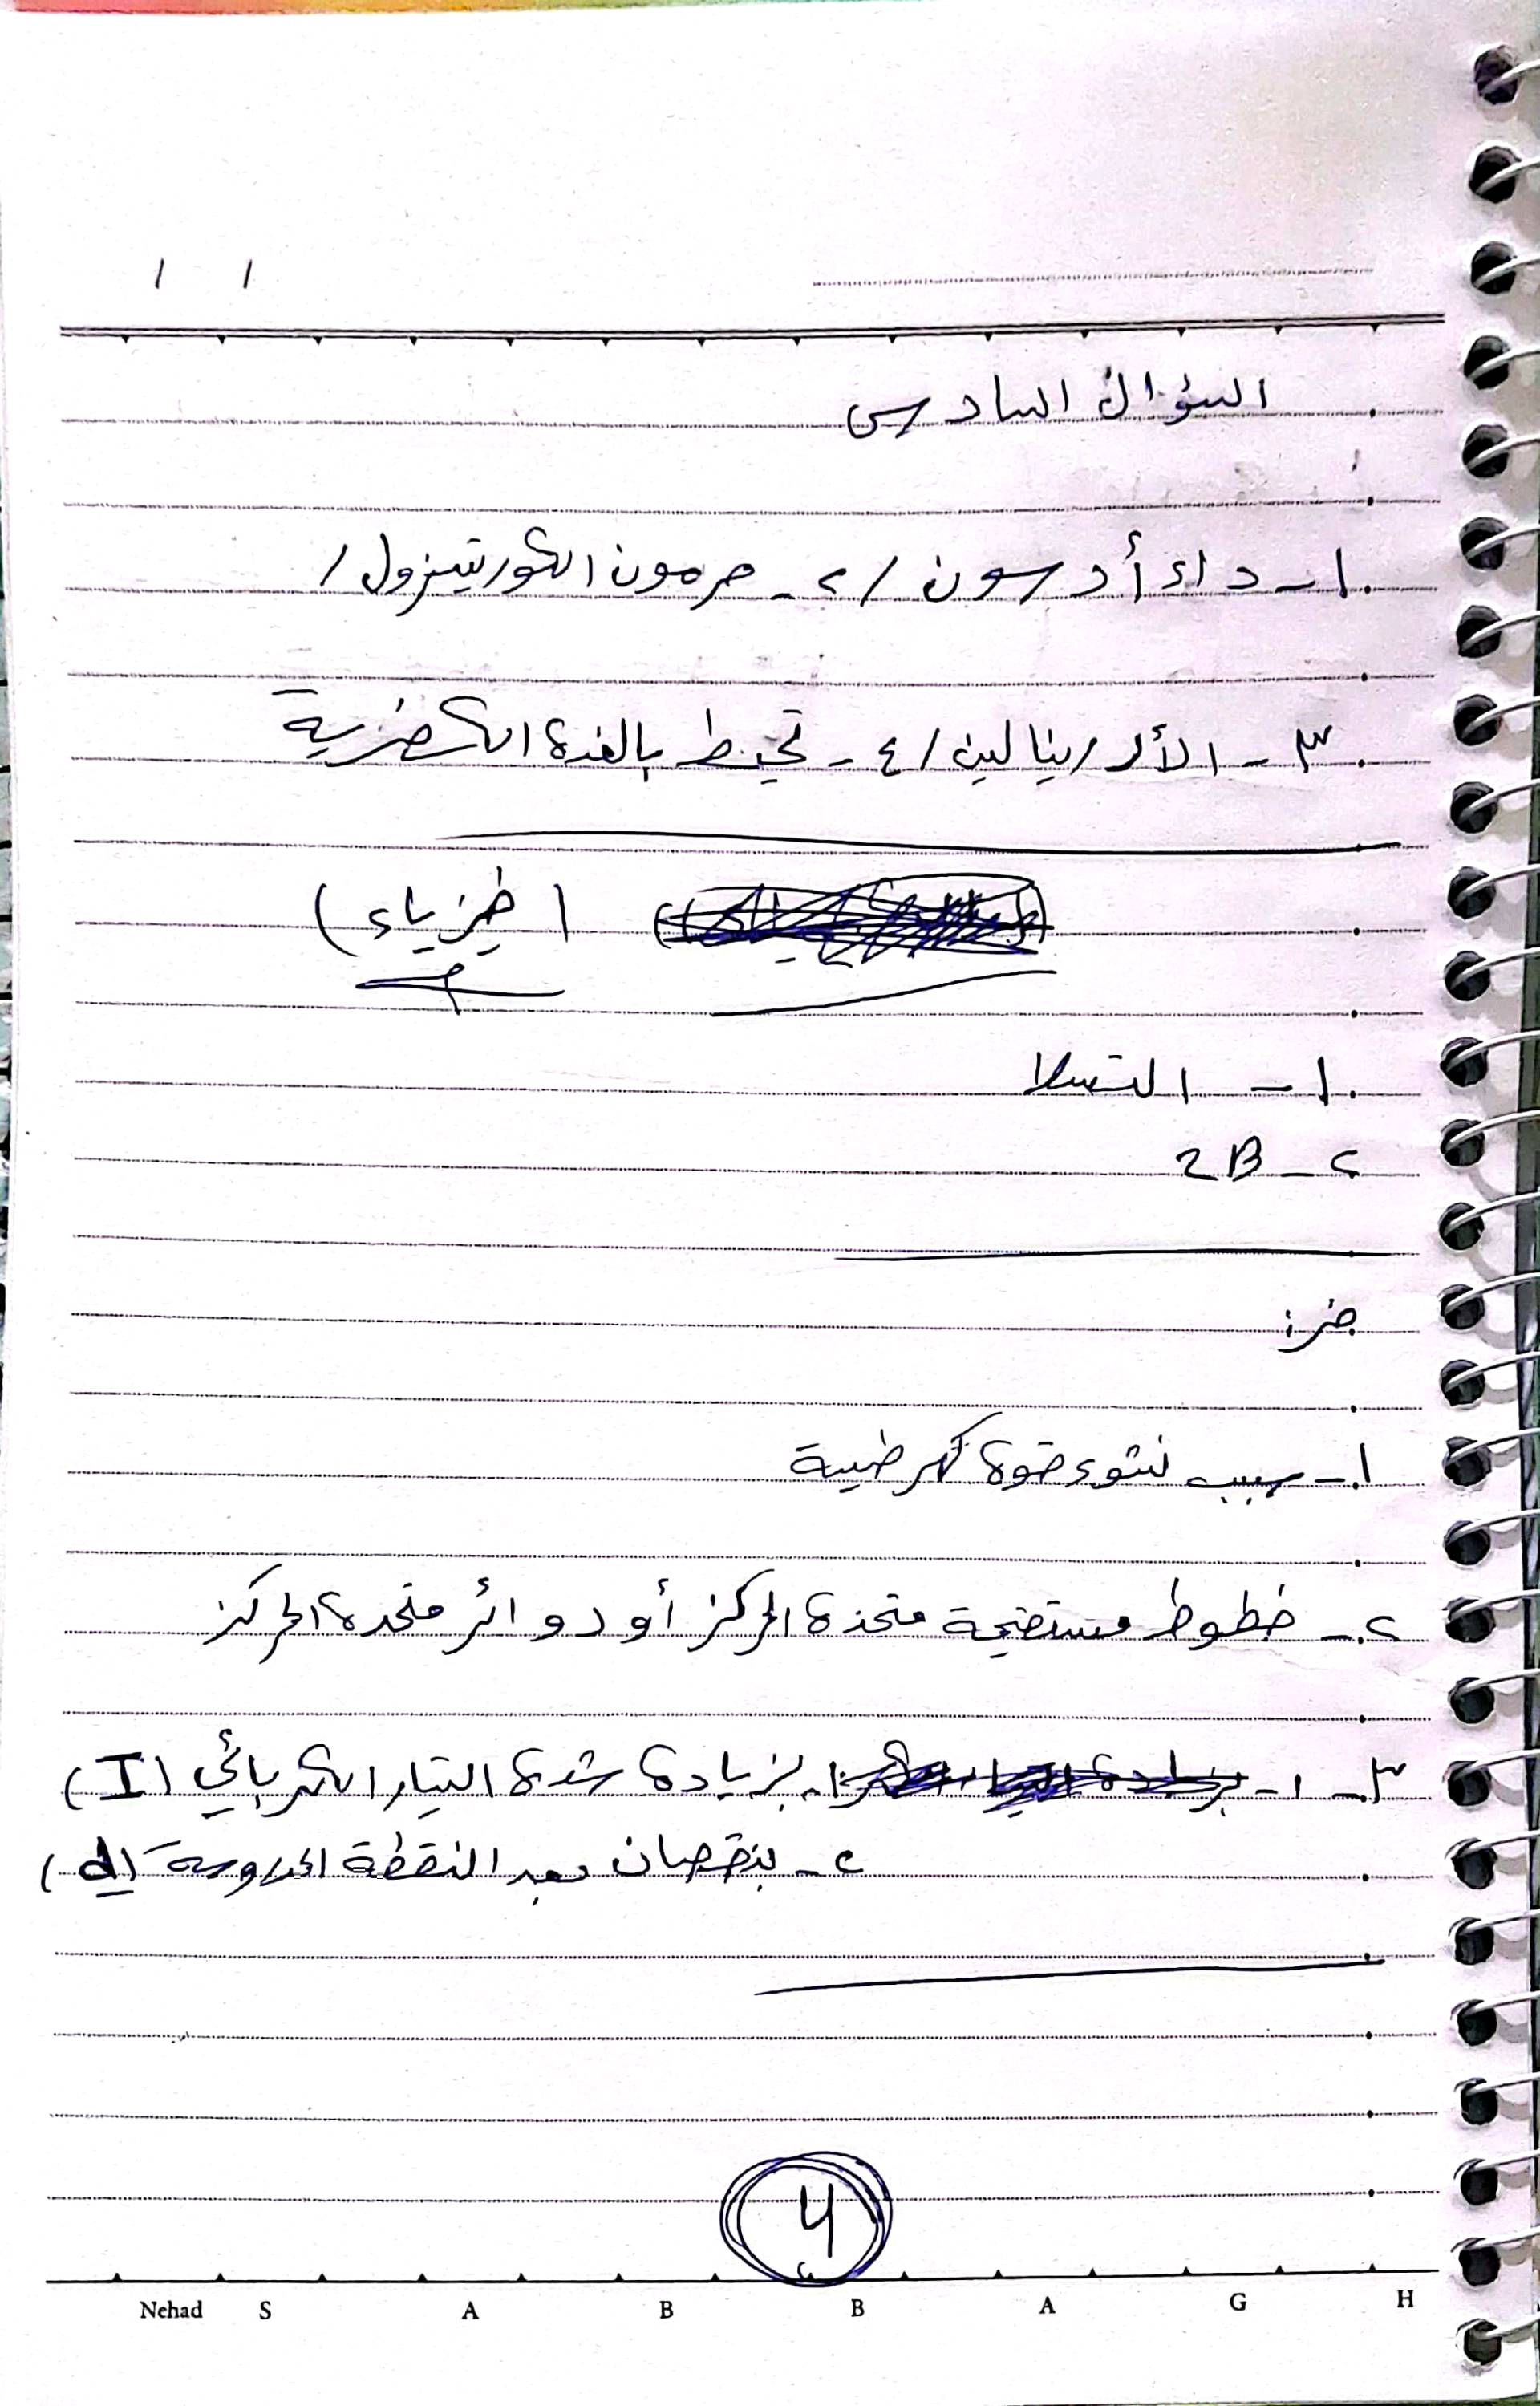 / /
السؤال السادس
١- داء أديسون / ٢- هرمون الكورتيزول /
٣- الأدرينالين / ٤- تحيط بالغدة الكظرية
(فيزياء)
١- التسلا
٢- 2B
فز:
١- سبب نشوء قوة كهرطيسية
٢- خطوط مستقيمة متحدة المركز أو دوائر متحدة المركز
٣- ١- بزيادة شدة التيار الكهربائي (I)
٢- بنقصان بعد النقطة المدروسة (d)
4
Nehad S A B B A G H